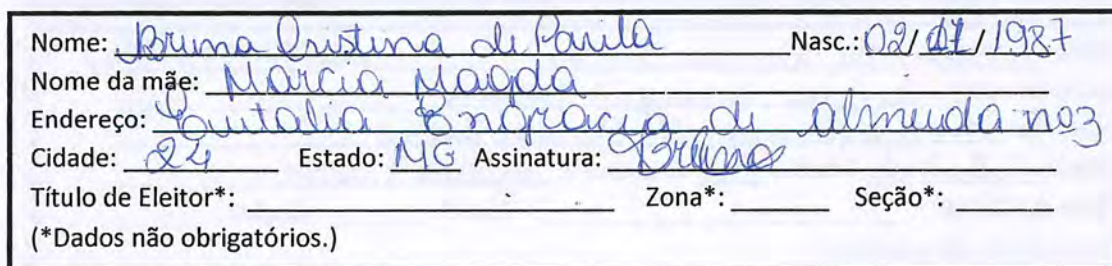 Nome: Bruna Cristina de Paula Nasc.: 02/01/1987
Nome da mãe: Marcia Magda
Endereço: Engracia de almeida nº3
Cidade: 24 Estado: MG Assinatura: Bruna
Título de Eleitor*: Zona*: Seção*:
(*Dados não obrigatórios.)